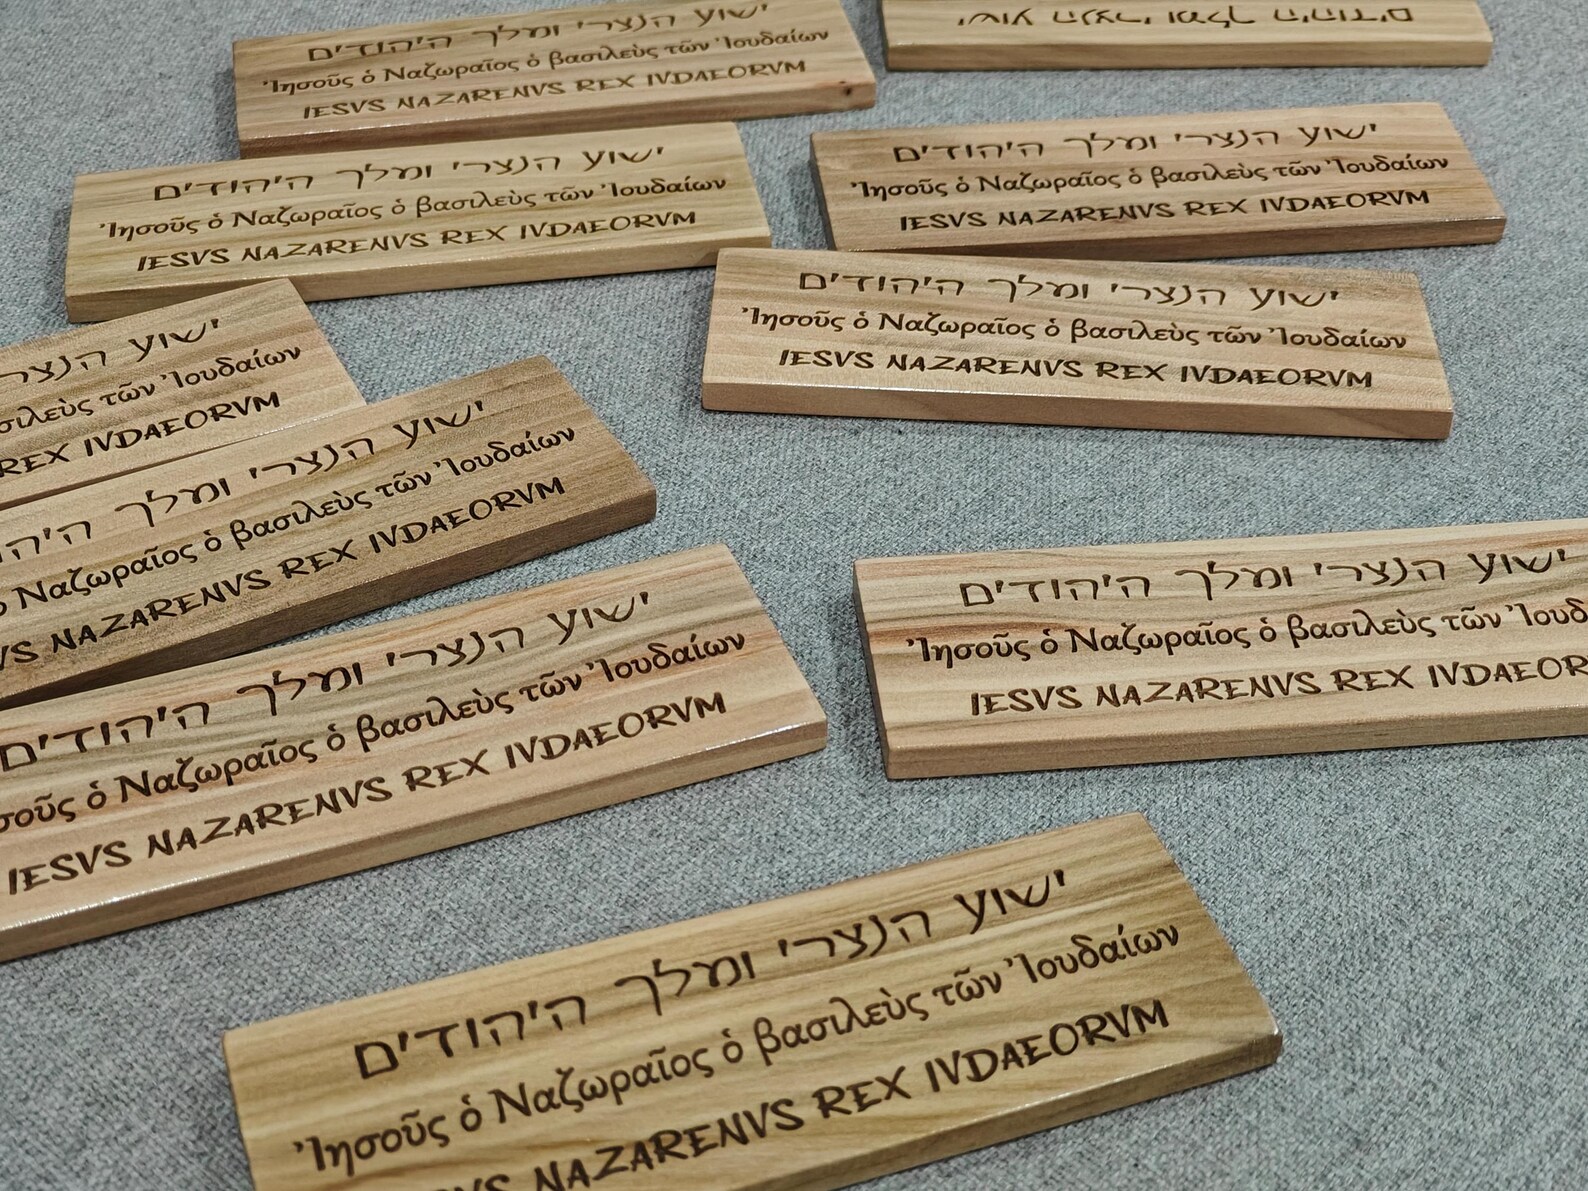 ישוע הנצרי ומלך היהודים
Ἰησοῦς ὁ Ναζωραῖος ὁ βασιλεὺς τῶν Ἰουδαίων
IESVS NAZARENVS REX IVDAEORVM
ישוע הנצרי ומלך היהודים
ישוע הנצרי ומלך היהודים
Ἰησοῦς ὁ Ναζωραῖος ὁ βασιλεὺς τῶν Ἰουδαίων
IESVS NAZARENVS REX IVDAEORVM
ישוע הנצרי ומלך היהודים
Ἰησοῦς ὁ Ναζωραῖος ὁ βασιλεὺς τῶν Ἰουδαίων
IESVS NAZARENVS REX IVDAEORVM
ישוע הנצרי ומלך היהודים
Ἰησοῦς ὁ Ναζωραῖος ὁ βασιλεὺς τῶν Ἰουδαίων
IESVS NAZARENVS REX IVDAEORVM
ישוע הנצרי
σιλεὺς τῶν Ἰουδαίων
REX IVDAEORVM
ישוע הנצרי ומלך היהו
ὁ Ναζωραῖος ὁ βασιλεὺς τῶν Ἰουδαίων
VS NAZARENVS REX IVDAEORVM
ישוע הנצרי ומלך היהודים
σοῦς ὁ Ναζωραῖος ὁ βασιλεὺς τῶν Ἰουδαίων
IESVS NAZARENVS REX IVDAEORVM
ישוע הנצרי ומלך היהודים
Ἰησοῦς ὁ Ναζωραῖος ὁ βασιλεὺς τῶν Ἰουδ
IESVS NAZARENVS REX IVDAEOR
ישוע הנצרי ומלך היהודים
Ἰησοῦς ὁ Ναζωραῖος ὁ βασιλεὺς τῶν Ἰουδαίων
VS NAZARENVS REX IVDAEORVM